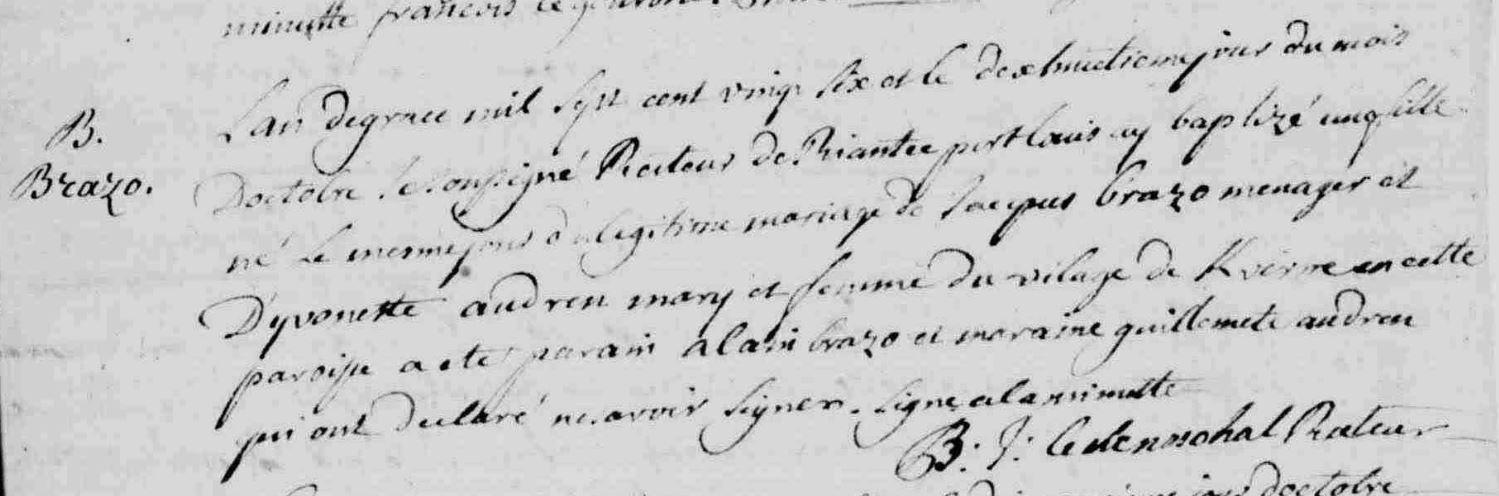 minutte francois
B.
Brazo.
Lan de grace mil sept cent vingt six et le dixhuictieme jour du mois
Doctobre Je soussigné Recteur de Riantec port Louis ay baptizé une fille
né Le mesme jour du legitime mariage de Jacques brazo menager et
D'yvonette audren mary et femme du vilage de Kverne en cette
paroisse a ete parain alain brazo et maraine guillemete audren
qui ont declaré ne savoir signer. Signe a la minutte
B. J. Recteur
jour doctobre